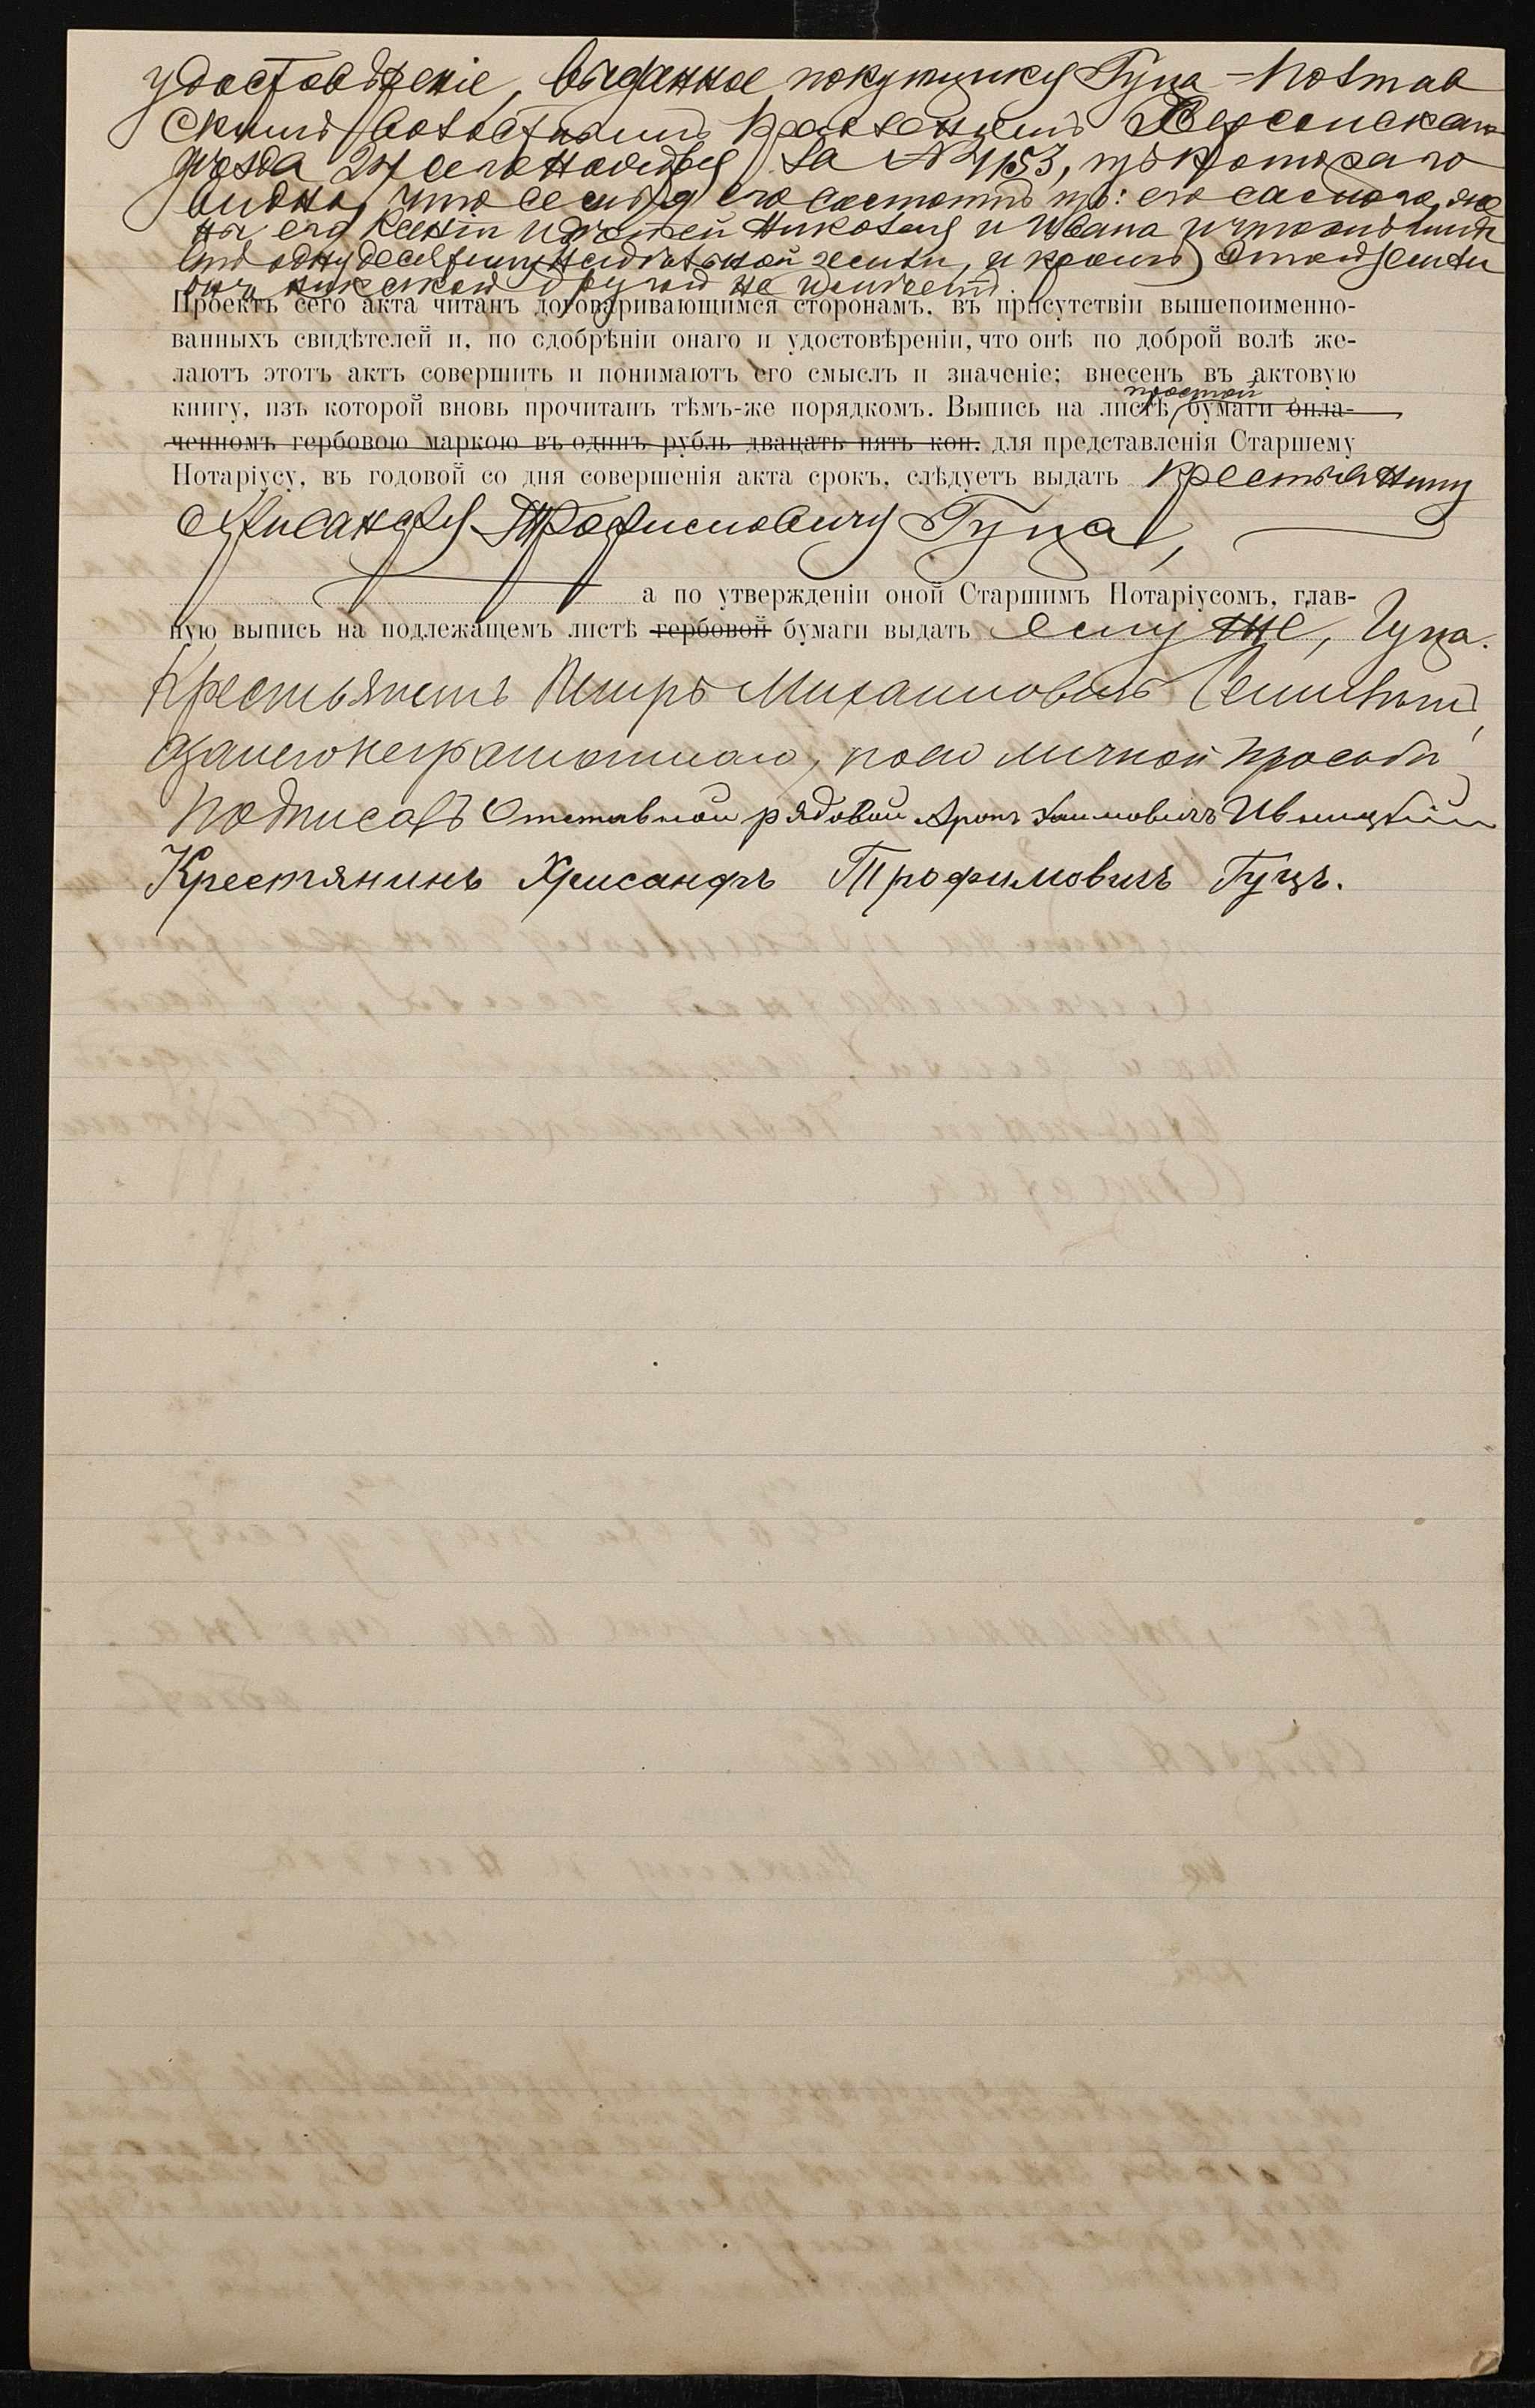 удостовѣреніе, выданное покупщику Гуца – Полтав
скимъ волостнымъ правленіемъ Херсонскаго
уѣзда 24 сего ноября за № 4153, изъ котораго
видно, что семья его состоитъ изъ: его самого, же
ны его Ксеніи и дѣтей Николая и Ивана и что онъ имѣ
етъ одну десятину надѣльной земли, и кромѣ этой земли
онъ никакой другой не имѣетъ.
Проектъ сего акта читанъ договаривающимся сторонамъ, въ присутствіи вышепоименно-
ванныхъ свидѣтелей и, по одобрѣніи онаго и удостовѣреніи, что онѣ по доброй волѣ же-
лаютъ этотъ актъ совершить и понимаютъ его смыслъ и значеніе; внесенъ въ актовую
простой
книгу, изъ которой вновь прочитанъ тѣмъ-же порядкомъ. Выпись на листѣ бумаги опла-
ченномъ гербовою маркою въ одинъ рубль двацать пять коп. для представленія Старшему
Нотаріусу, въ годовой со дня совершенія акта срокъ, слѣдуетъ выдать крестьянину
Хрисанфу Трофимовичу Гуца,
а по утвержденіи оной Старшимъ Нотаріусомъ, глав-
ную выпись на подлежащемъ листѣ гербовой бумаги выдать ему же, Гуца.
Крестьянинъ Петръ Михаиловичъ
а за него неграмотнаго, по его личной просьбѣ
подписалъ Отставной рядовой Аронъ Хаимовичъ Ивницкій
Крестянинъ Хрисанфъ Трофимовичъ Гуцъ.